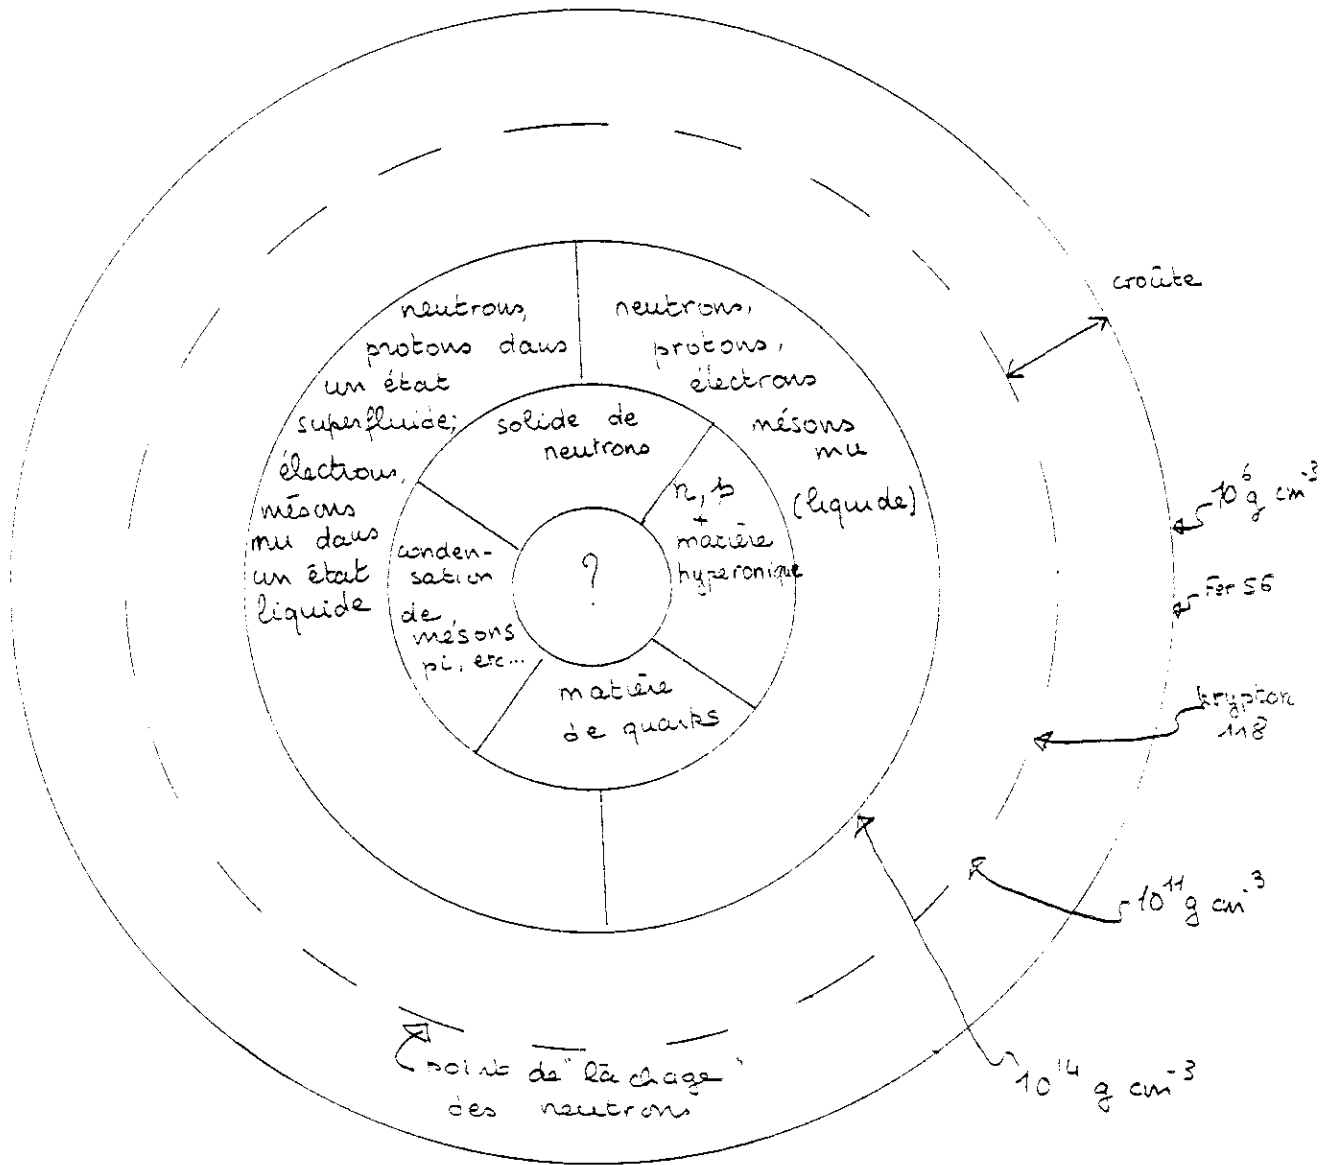 croûte
neutrons,
protons dans
un état
superfluide;
électrons,
mésons
mu dans
un état
liquide
neutrons,
protons,
électrons
mésons
mu
(liquide)
solide de
neutrons
n, p
+
matière
hyperonique
conden-
sation
de
mésons
pi, etc...
?
matière
de quarks
10⁶ g cm⁻³
Fer 56
krypton
118
10¹¹ g cm⁻³
10¹⁴ g cm⁻³
point de "lâchage"
des neutrons